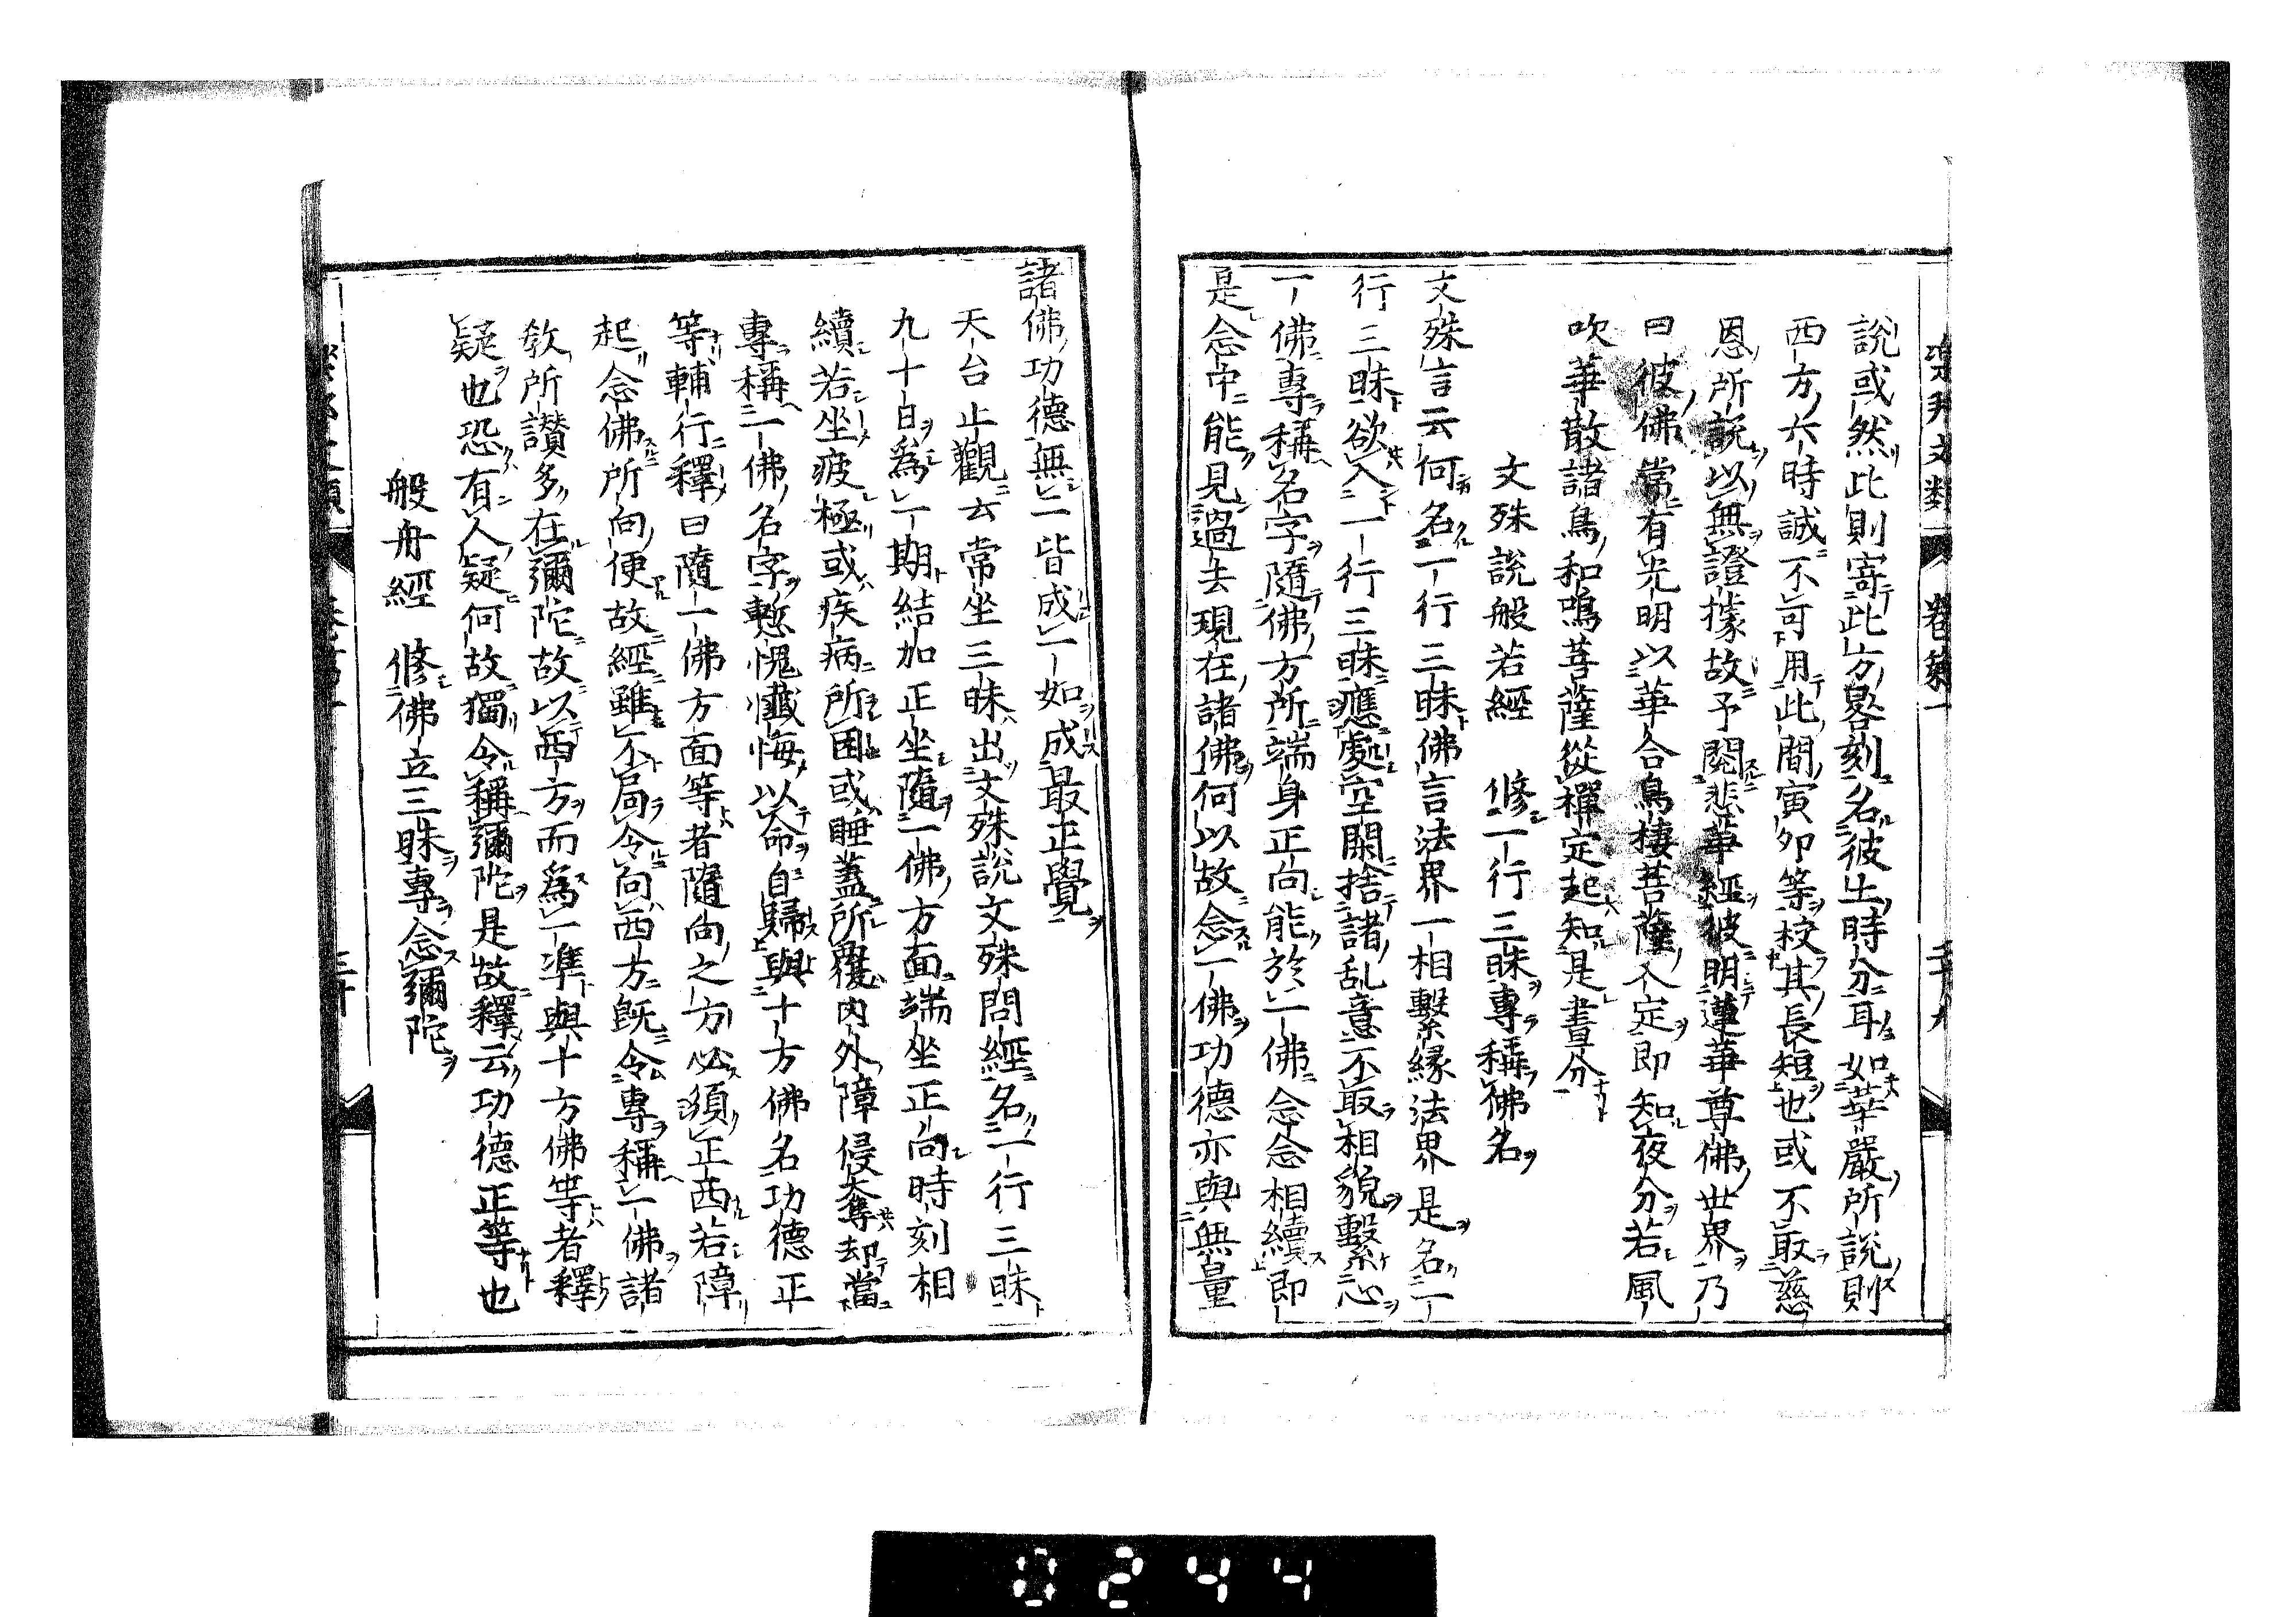 說或然此則寄此方畧刻名彼土時分耳如華嚴所說則
西方六時誠不可用此間寅夘等校其長短也或不取慈
恩所說以無證據故予閱悲華經彼明蓮華尊佛世界乃
曰彼佛常有光明以華合鳥棲菩薩入定即知夜分若風
吹華散諸鳥和鳴菩薩從禪定起知是晝分
文殊說般若經　修一行三昧專稱佛名
文殊言云何名一行三昧佛言法界一相繫縁法界是名一
行三昧欲入一行三昧應處空閑捨諸乱意不取相貌繫心
一佛專稱名字隨佛方所端身正向能於一佛念念相續即
是念中能見過去現在諸佛何以故念一佛功德亦與無量
諸佛功德無二皆成一如成最正覺
天台止觀云常坐三昧出文殊說文殊問經名一行三昧
九十日爲一期結加正坐隨一佛方面端坐正向時刻相
續若坐疲極或疾病所困或睡蓋所覆内外障侵奪却當
專稱一佛名字慙愧懺悔以命自歸與十方佛名功德正
等輔行釋曰隨一佛方面等者隨向之方必須正西若障
起念佛所向便故經雖不局令向西方既令專稱一佛諸
敎所讚多在彌陀故以西方而爲一準與十方佛等者釋
疑也恐有人疑何故獨令稱彌陀是故釋云功德正等也
般舟經　修佛立三昧專念彌陀
樂邦文類　卷第一
0244